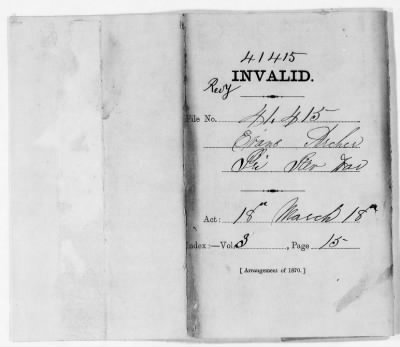 41415
INVALID.
Revy
File No. 41.415
Evans Archer
Pri Rev War
Act: 18th March 18
Index:—Vol. 3, Page 15
[ Arrangement of 1870. ]